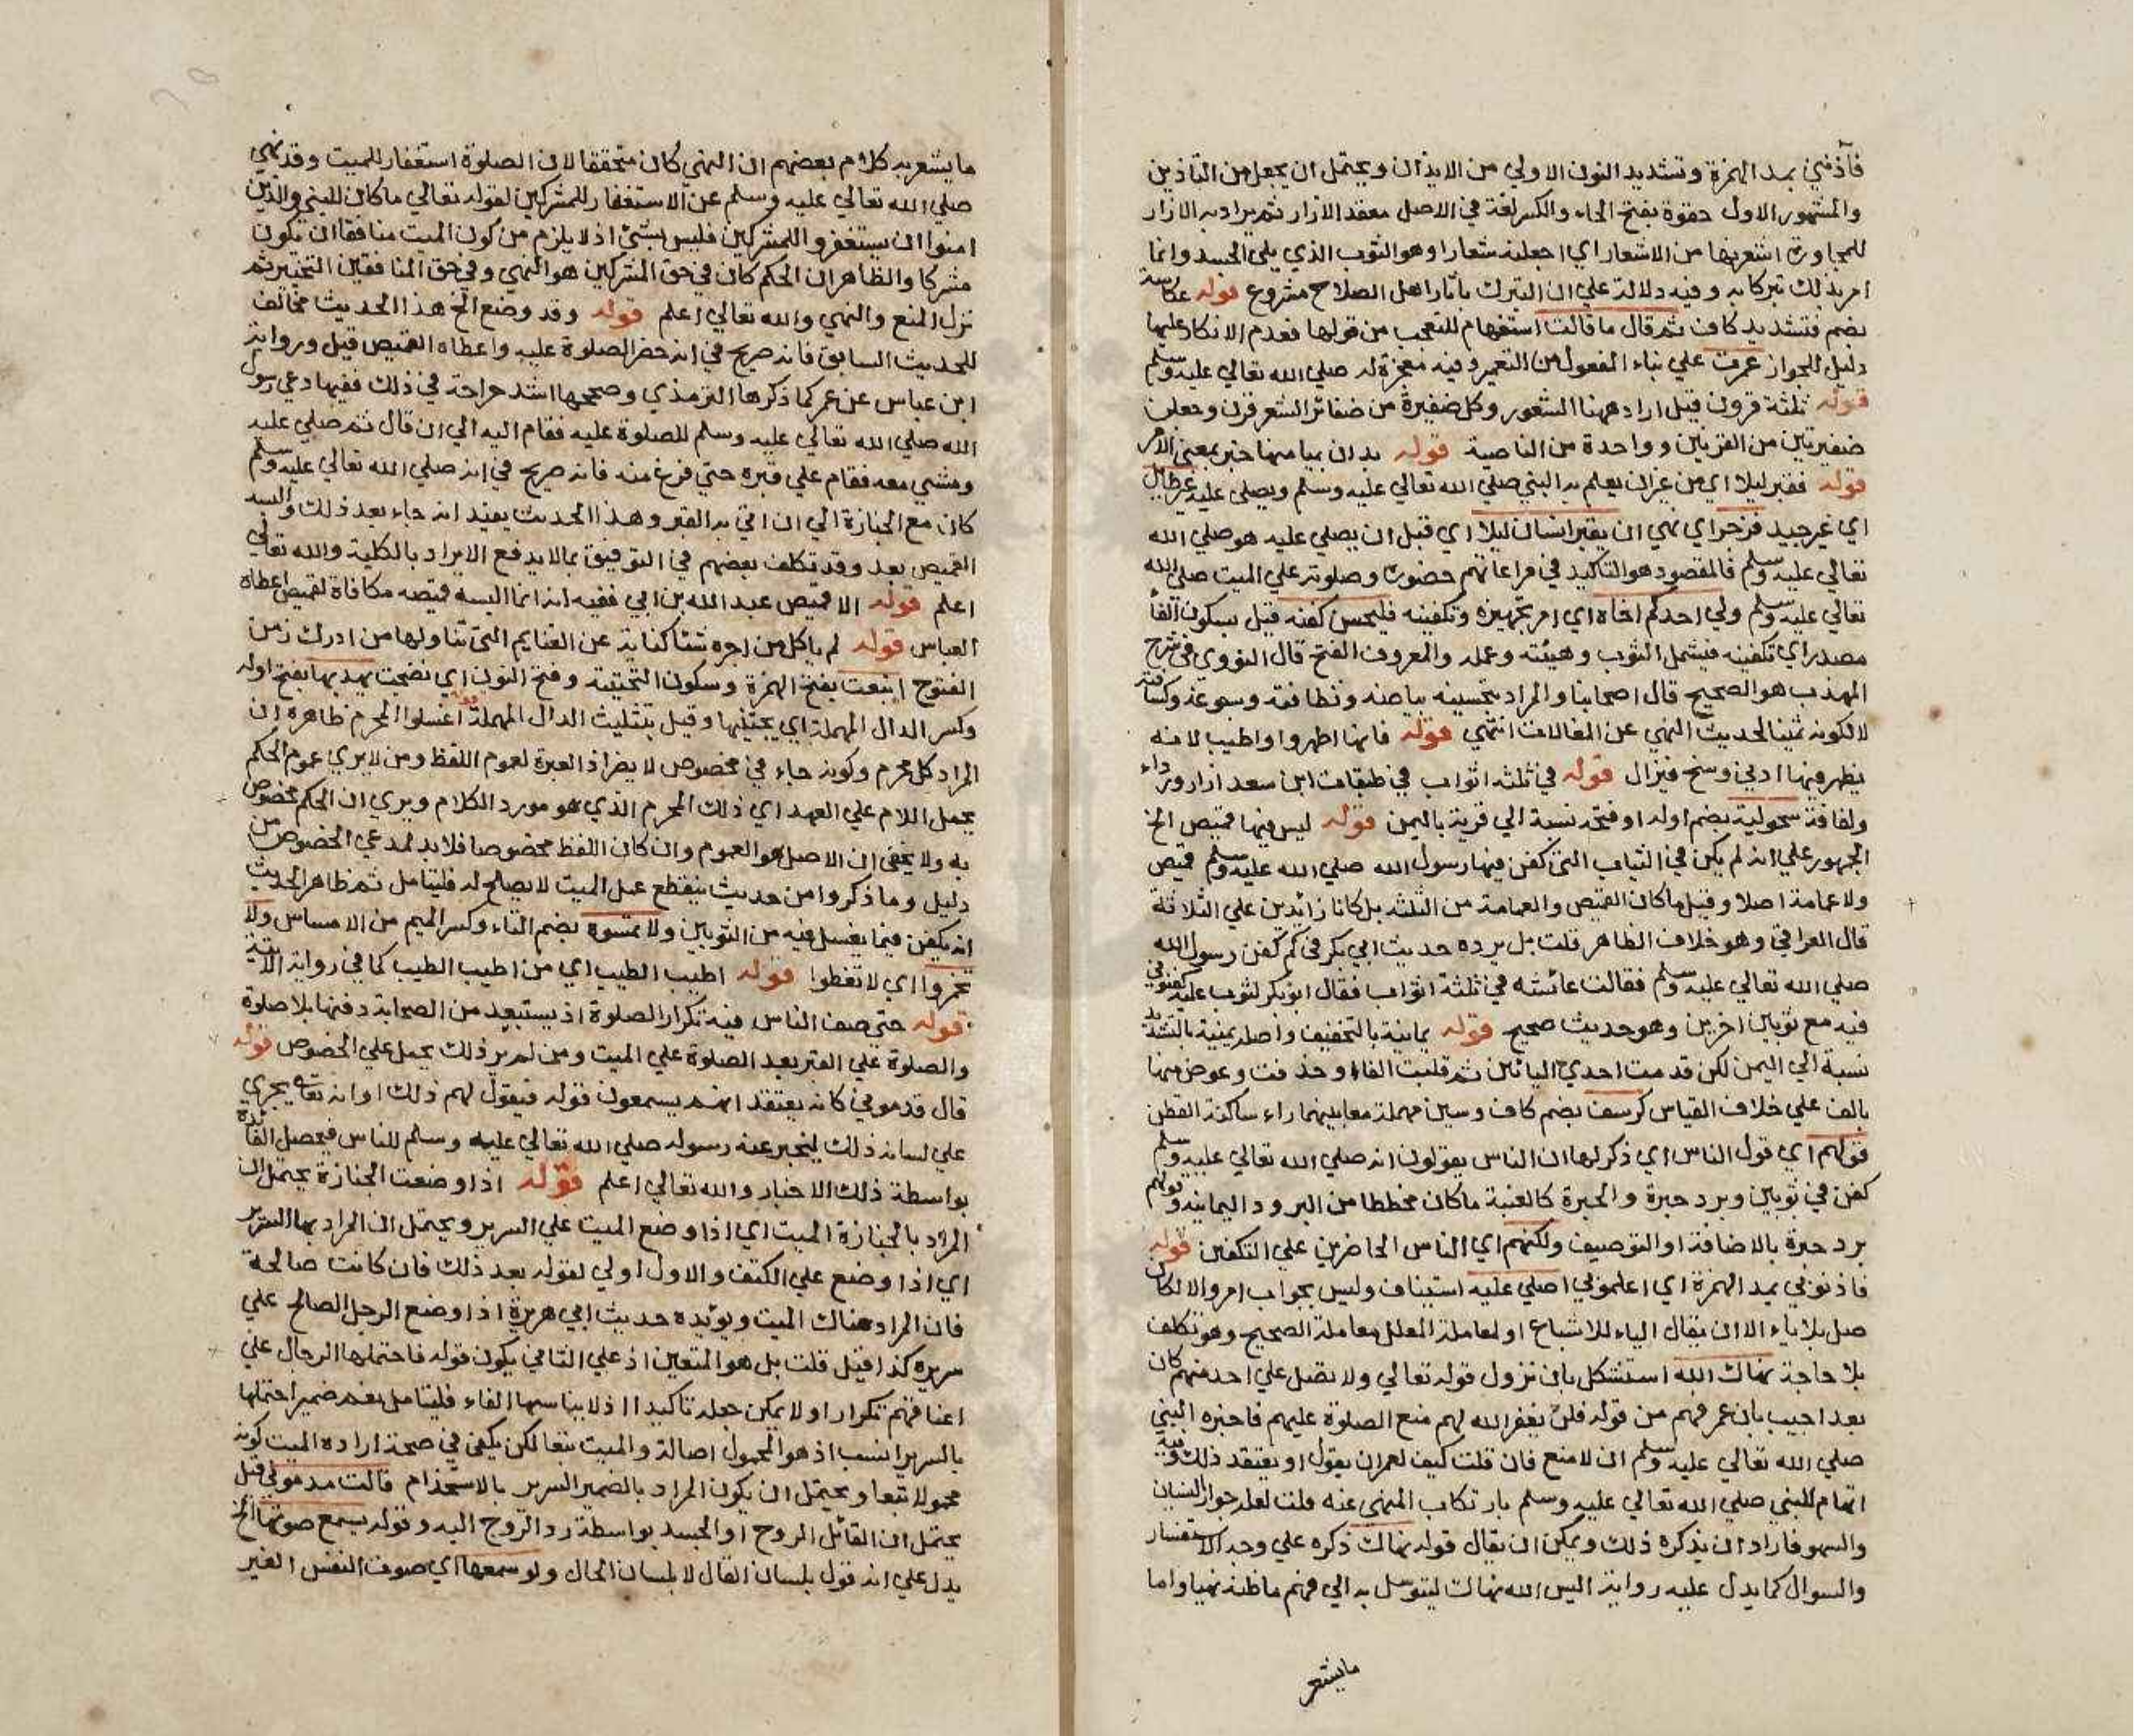 فآذنني بمد الهمزة وتشديد النون الاولي من الايذان ويحتمل ان يجعل من التاذين
والمشهور الاول حقوة بفتح الحاء والكسر لغة في الاصل معقد الازار ثم يراد به الازار
للمجاورة اشعرنها من الاشعار اي اجعلنه شعارا وهو الثوب الذي يلي الجسد وانما
امر بذلك تبركا به وفيه دلالة علي ان التبرك بآثار اهل الصلاح مشروع قوله عكاشة
بضم فتشديد كاف ثم قال ما قالت استفهام للتعجب من قولها فعدم الانكار عليها
دليل للجواز عمرت علي بناء المفعول من التعمير وفيه معجزة له صلي الله تعالي عليه وسلم
قوله ثلثة قرون قيل اراد ههنا الشعور وكل ضفيرة من ضفائر الشعر قرن وجعلن
ضفيرتين من القرنين وواحدة من الناصية قوله بدان بميامنها خبر بمعني الامر
قوله فقبر ليلا اي من غير ان يعلم به النبي صلي الله تعالي عليه وسلم ويصلي عليه غير طايل
اي غير جيد فزجر اي نهي ان يقبر انسان ليلا اي قبل ان يصلي عليه هو صلي الله
تعالي عليه وسلم فالمقصود هو التاكيد في مراعاتهم حضوره وصلوته علي الميت صلي الله
تعالي عليه وسلم ولي احدكم اخاه اي امر تجهيزه وتكفينه فليحسن كفنه قيل بسكون الفا
مصدر اي تكفينه فيشمل الثوب وهيئته وعمله والمعروف الفتح قال النووي في شرح
المهذب هو الصحيح قال اصحابنا والمراد بتحسينه بياضه ونظافته وسبوغه وكثافته
لا لكونه ثمينا لحديث النهي عن المغالات انتهي قوله فانها اطهر واواطيب لانه
يظهر فيها ادني وسخ فيزال قوله في ثلثه اثواب في طبقات ابن سعد ازار ورداء
ولفافة سحولية بضم اوله او فتحه نسبة الي قرية باليمن قوله ليس فيها قميص الخ
الجمهور علي انه لم يكن في الثياب التي كفن فيها رسول الله صلي الله عليه وسلم قميص
ولا عمامة اصلا وقيل ما كان القميص والعمامة من الثلثه بل كانا زائدين علي الثلاثة
قال العراقي وهو خلاف الظاهر قلت بل يرده حديث ابي بكر في كم كفن رسول الله
صلي الله تعالي عليه وسلم فقالت عائشه في ثلثة اثواب فقال ابو بكر لثوب عليه كفنوني
فيه مع ثوبين اخرين وهو حديث صحيح قوله يمانية بالتخفيف واصله يمنية بالتشديد
نسبة الي اليمن لكن قدمت احدي اليائين ثم قلبت الفا او حذفت وعوض منها
بالف علي خلاف القياس كرسف بضم كاف وسين مهملة معا بينهما راء ساكنة القطن
قولهم اي قول الناس اي ذكر لها ان الناس يقولون انه صلي الله تعالي عليه وسلم
كفن في ثوبين وبرد حبرة والحبرة كالعنبة ما كان مخططا من البرود اليمانيه وقولهم
برد حبرة بالاضافة او التوصيف ولكنهم اي الناس الحاضرين علي التكفين قوله
فاذنوني بمد الهمزة اي اعلموني اصلي عليه استيناف وليس بجواب امر والا لكان
صل بلا ياء الا ان يقال الياء للاشباع او لمعاملة المعلل معاملة الصحيح وهو تكلف
بلا حاجة نهاك الله استشكل بان نزول قوله تعالي ولا تصل علي احد منهم كان
بعد اجيب بان عمر فهم من قوله فلن يغفر الله لهم منع الصلوة عليهم فاخبره النبي
صلي الله تعالي عليه وسلم ان لا منع فان قلت كيف لعمر ان يقول او يعتقد ذلك وفيه
اتهام للنبي صلي الله تعالي عليه وسلم بارتكاب المنهي عنه قلت لعله جوز النسيان
والسهو فاراد ان يذكره ذلك ويمكن ان يقال قوله نهاك ذكره علي وجه الاستفسار
والسوال كما يدل عليه رواية اليس الله نهاك ليتوسل به الي فهم ما ظنه نهيا واما
مايشعر
ما يشعر به كلام بعضهم ان النهي كان متحققا لان الصلوة استغفار للميت وقد نهي
صلي الله تعالي عليه وسلم عن الاستغفار للمشركين لقوله تعالي ما كان للنبي والذين
امنوا ان يستغفروا للمشركين فليس بشئ اذ لا يلزم من كون الميت منافقا ان يكون
مشركا والظاهر ان الحكم كان في حق المشركين هو النهي وفي حق المنافقين التخيير ثم
نزل المنع والنهي والله تعالي اعلم قوله وقد وضع الخ هذا الحديث مخالف
للحديث السابق فانه صريح في انه حضر الصلوة عليه واعطاه القميص قبل ورواية
ابن عباس عن عمر كما ذكرها الترمذي وصححها اشد صراحة في ذلك ففيها دعي رسول
الله صلي الله تعالي عليه وسلم للصلوة عليه فقام اليه الي ان قال ثم صلي عليه
ومشي معه فقام علي قبره حتي فرغ منه فانه صريح في انه صلي الله تعالي عليه وسلم
كان مع الجنازة الي ان اتي به القبر وهذا الحديث يفيد انه جاء بعد ذلك والبسه
القميص بعد وقد تكلف بعضهم في التوفيق بما لا يدفع الايراد بالكلية والله تعالي
اعلم قوله الا قميص عبد الله بن ابي ففيه انه انما البسه قميصه مكافاة لقميص اعطاه
العباس قوله لم ياكل من اجره شئا كناية عن الغنايم التي تناولها من ادرك زمن
الفتوح اينعت بفتح الهمزة وسكون التحتية وفتح النون اي نضجت يهدبها بفتح اوله
وكسر الدال المهملة اي يجتنيها وقيل بتثليث الدال المهملة قوله اغسلوا المحرم ظاهره ان
المراد كل محرم وكونه جاء في مخصوص لا يضر اذ العبرة لعموم اللفظ ومن لا يري عموم الحكم
يحمل اللام علي العهد اي ذلك المحرم الذي هو مورد الكلام ويري ان الحكم مخصوص
به ولا يخفي ان الاصل هو العموم وان كان اللفظ مخصوصا فلا بد لمدعي الخصوص من
دليل وما ذكروا من حديث ينقطع عمل الميت لا يصلح له فليتامل ثم ظاهر الحديث
انه يكفن فيما يغسل فيه من الثوبين ولا تمسوه بضم التاء وكسر الميم من الامساس ولا
تخمروا اي لا تغطوا قوله اطيب الطيب اي من اطيب الطيب كما في رواية الاتية
قوله حتي صف الناس فيه تكرار الصلوة اذ يستبعد من الصحابة دفنها بلا صلوة
والصلوة علي القبر بعد الصلوة علي الميت ومن لم ير ذلك يحمل علي الخصوص قوله
قال قدموني كانه يعتقد انهم يسمعون قوله فيقول لهم ذلك او انه تعالي يجري
علي لسانه ذلك ليخبر عنه رسوله صلي الله تعالي عليه وسلم للناس فيحصل الفائدة
بواسطة ذلك الاخبار والله تعالي اعلم قوله اذا وضعت الجنازة يحتمل ان
المراد بالجنازة الميت اي اذا وضع الميت علي السرير ويحتمل ان المراد بها السرير
اي اذا وضع علي الكتف والاول اولي لقوله بعد ذلك فان كانت صالحة
فان المراد هناك الميت ويؤيده حديث ابي هريرة اذا وضع الرجل الصالح علي
سريره كذا قيل قلت بل هو المتعين اذ علي الثاني يكون قوله فاحتملها الرجال علي
اعناقهم تكرارا ولا يمكن جعله تاكيدا اذ لا يناسبها الفاء فليتامل نعم ضمير احتملها
بالسرير انسب اذ هو المحمول اصالة والميت تبعا لكن يكفي في صحة ارادة الميت كونه
محمولا تبعا ويحتمل ان يكون المراد بالضمير السرير بالاستخذام قالت قدموني قيل
يحتمل ان القائل الروح او الجسد بواسطة رد الروح اليه وقوله يسمع صوتها الخ
يدل علي انه قول بلسان القال لا بلسان الحال ولو سمعها اي صوت النفس الغير